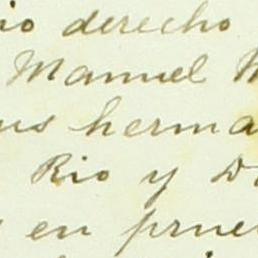 io derecho
Manuel M
us herma
Rio y D
en prue